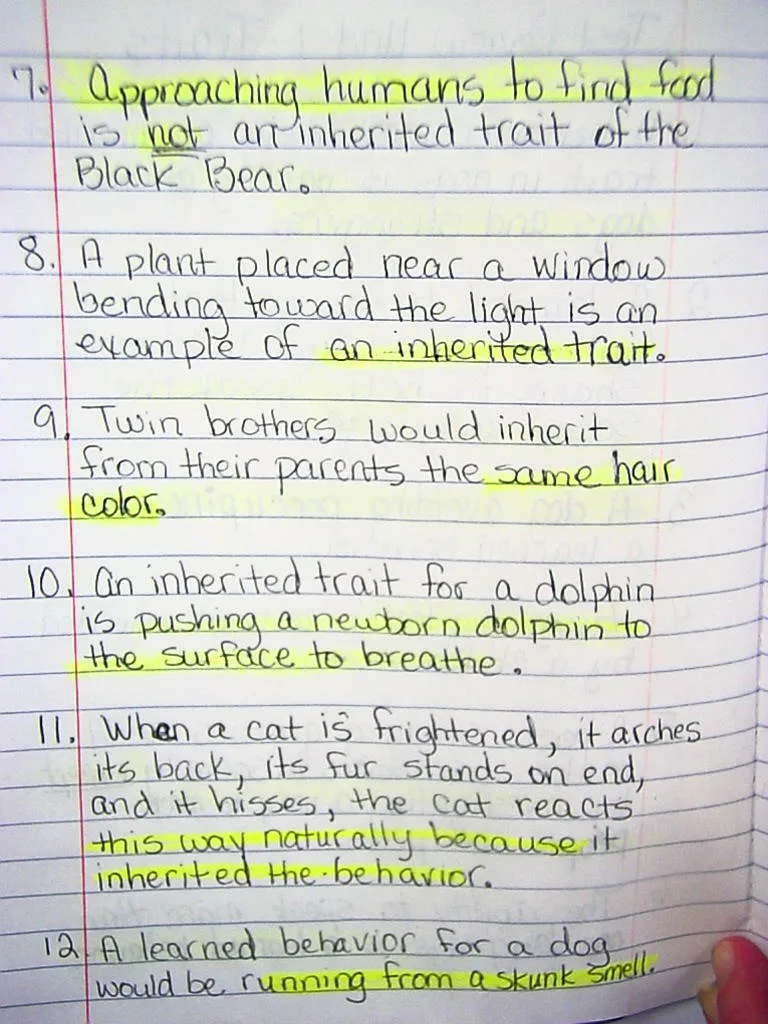 7. Approaching humans to find food
is not an inherited trait of the
Black Bear.
8. A plant placed near a window
bending toward the light is an
example of an inherited trait.
9. Twin brothers would inherit
from their parents the same hair
color.
10. An inherited trait for a dolphin
is pushing a newborn dolphin to
the surface to breathe.
11. When a cat is frightened, it arches
its back, its fur stands on end,
and it hisses, the cat reacts
this way naturally because it
inherited the behavior.
12 A learned behavior for a dog
would be running from a skunk smell.